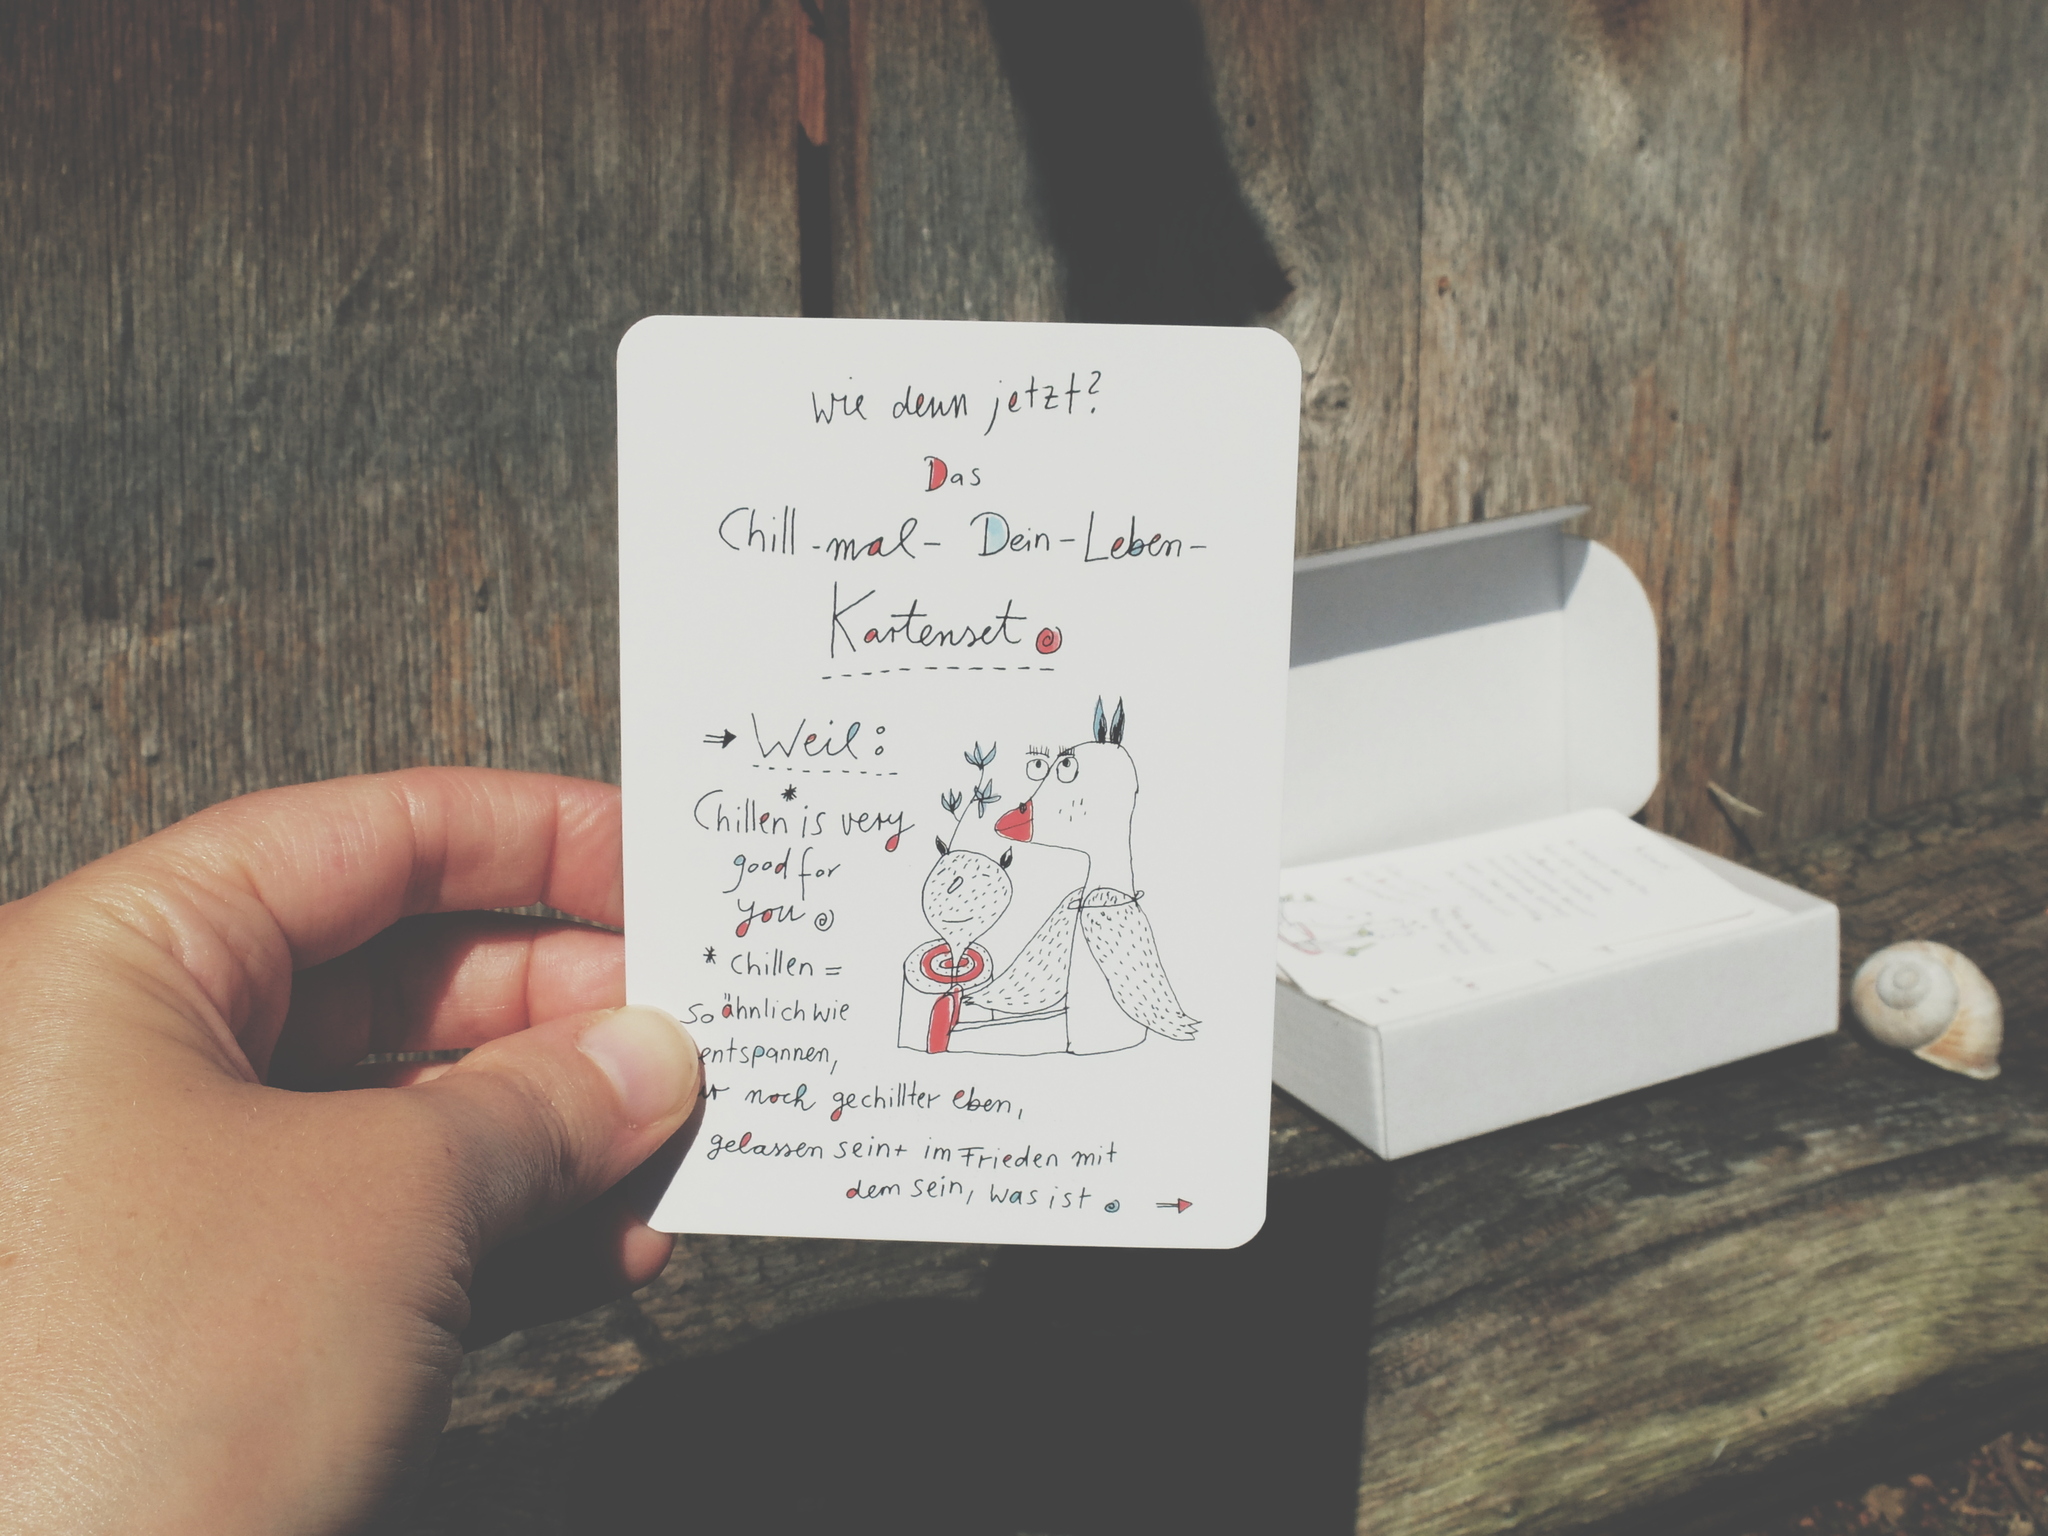 wie denn jetzt?
Das
Chill-mal-Dein-Leben-
Kartenset
→ Weil:
Chillen* is very
good for
you
* chillen =
so ähnlich wie
entspannen,
noch gechillter eben,
gelassen sein + im Frieden mit
dem sein, was ist →